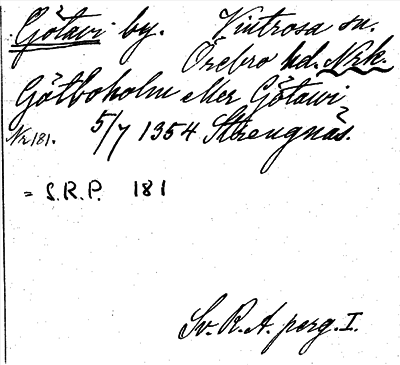 Götawi by. Vintrosa sn.
Örebro hd. Nrk.
Götboholm eller Götawi
Nr 181. 5/7 1354 Strengnäs.
= S.R.P. 181
Sv. R. A. perg. I.